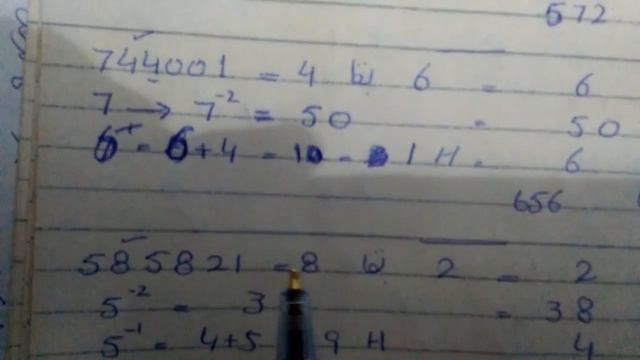 572
744001 = 4 6 = 6
7 → 7⁻² = 50 = 50
= 6+4 = 10 - 1 H = 6
656
585821 = 8 2 = 2
5⁻² = 3 = 38
5⁻¹ = 4+5 9 H 4